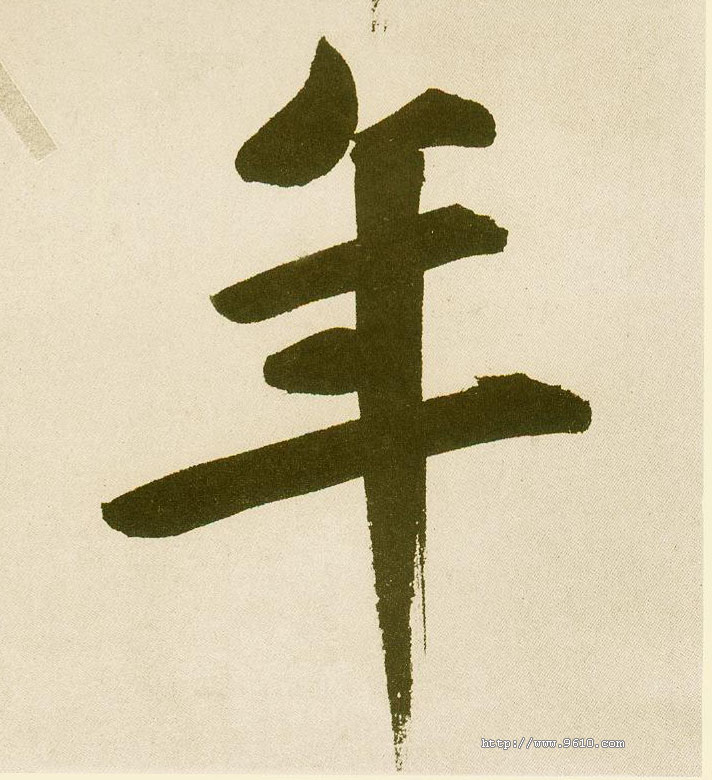 年
http://www.9610.com